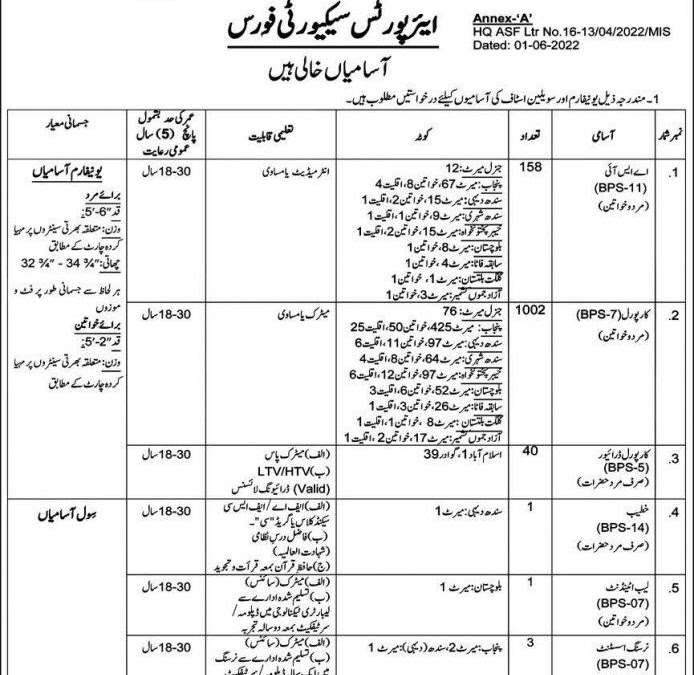 ایئرپورٹس سیکیورٹی فورس
Annex-'A'
HQ ASF Ltr No.16-13/04/2022/MIS
Dated: 01-06-2022
آسامیاں خالی ہیں
1۔ مندرجہ ذیل یونیفارم اور سویلین اسٹاف کی آسامیوں کیلئے درخواستیں مطلوب ہیں۔
نمبر شمار
آسامی
تعداد
کوٹہ
تعلیمی قابلیت
عمر کی حد بشمول
پانچ (5) سال
عمومی رعایت
جسمانی معیار
1.
اے ایس آئی
(BPS-11)
(مرد و خواتین)
158
جنرل میرٹ: 12
پنجاب: میرٹ 67، خواتین 8، اقلیت 4
سندھ دیہی: میرٹ 15، خواتین 2، اقلیت 1
سندھ شہری: میرٹ 9، خواتین 1، اقلیت 1
خیبر پختونخواہ: میرٹ 15، خواتین 2، اقلیت 1
بلوچستان: میرٹ 8، خواتین 1
سابقہ فاٹا: میرٹ 4، خواتین 1
گلگت بلتستان: میرٹ 1، خواتین 1
آزاد جموں کشمیر: میرٹ 3، خواتین 1
انٹرمیڈیٹ یا مساوی
18-30 سال
یونیفارم آسامیاں
برائے مرد
قد "6-'5:
وزن: متعلقہ بھرتی سینٹروں پر مہیا
کردہ چارٹ کے مطابق
چھاتی: "¾ 34 - "¾ 32
ہر لحاظ سے جسمانی طور پر فٹ و
موزوں
برائے خواتین
قد "2-'5:
وزن: متعلقہ بھرتی سینٹروں پر مہیا
کردہ چارٹ کے مطابق
2.
کارپورل (BPS-7)
(مرد و خواتین)
1002
جنرل میرٹ: 76
پنجاب: میرٹ 425، خواتین 50، اقلیت 25
سندھ دیہی: میرٹ 97، خواتین 11، اقلیت 6
سندھ شہری: میرٹ 64، خواتین 8، اقلیت 4
خیبر پختونخواہ: میرٹ 97، خواتین 12، اقلیت 6
بلوچستان: میرٹ 52، خواتین 6، اقلیت 3
سابقہ فاٹا: میرٹ 26، خواتین 3، اقلیت 1
گلگت بلتستان: میرٹ 8، خواتین 1، اقلیت 1
آزاد جموں کشمیر: میرٹ 17، خواتین 2، اقلیت 1
میٹرک یا مساوی
18-30 سال
3.
کارپورل ڈرائیور
(BPS-5)
(صرف مرد حضرات)
40
اسلام آباد 1، گوادر 39
(الف) میٹرک پاس
(ب) LTV/HTV
(Valid) ڈرائیونگ لائسنس
18-30 سال
4.
خطیب
(BPS-14)
(صرف مرد حضرات)
1
سندھ دیہی: میرٹ 1
(الف) ایف اے / ایف ایس سی
سیکنڈ کلاس یا گریڈ "سی"۔
(ب) فاضل درس نظامی
(شہادت العالمیہ)
(ج) حافظ قرآن بمعہ قرأت و تجوید
18-30 سال
سول آسامیاں
5.
لیب اٹینڈنٹ
(BPS-07)
(مرد و خواتین)
1
بلوچستان: میرٹ 1
(الف) میٹرک (سائنس)
(ب) تسلیم شدہ ادارے سے
لیبارٹری ٹیکنالوجی میں ڈپلومہ /
سرٹیفکیٹ بمعہ دو سالہ تجربہ
18-30 سال
6.
نرسنگ اسسٹنٹ
(BPS-07)
3
پنجاب: میرٹ 2، سندھ (دیہی): میرٹ 1
(الف) میٹرک (سائنس)
(ب) تسلیم شدہ ادارے سے نرسنگ
میں ایک سالہ ڈپلومہ / سرٹیفکیٹ
18-30 سال